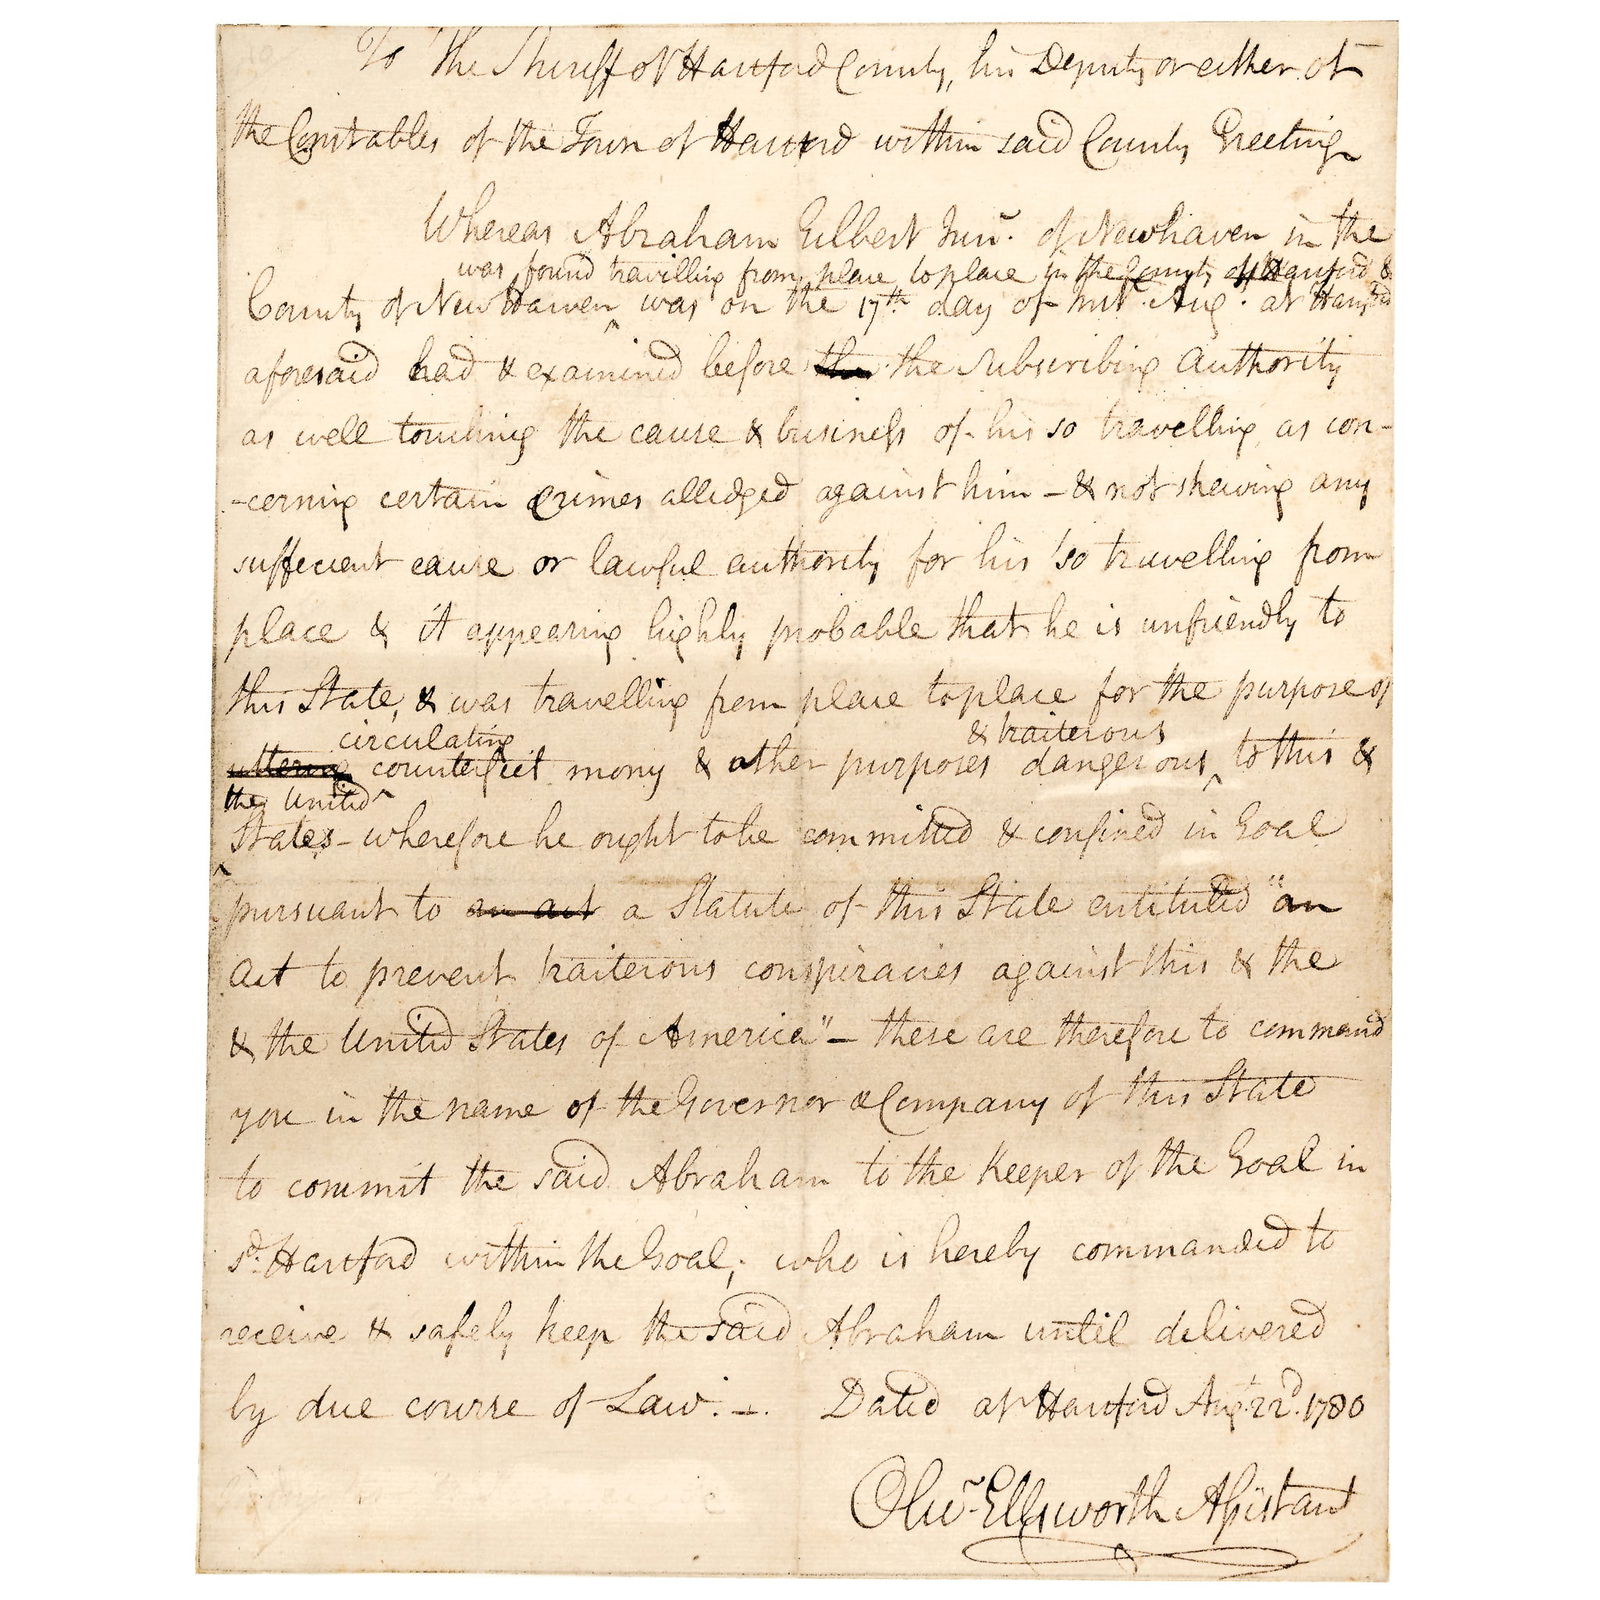 To the Sheriff of Hartford County, his Deputy or either of
the Constables of the Town of Hartford within said County Greeting
Whereas Abraham Gilbert Junr. of Newhaven in the
was found travilling from place to place in the County of Hartford &
County of New Haven was on the 17th day of inst. Aug. at Hartford
aforesaid had & examined before the the subscribing Authority
as well touching the cause & business of his so travelling as con-
-cerning certain crimes alledged against him - & not shewing any
suffecient cause or lawful authority for his so travelling from
place & it appearing highly probable that he is unfriendly to
this State, & was travelling from place to place for the purpose of
circulating & traiterous
uttering counterfeit mony & other purposes dangerous to this &
the United
States - wherefore he ought to be committed & confined in Goal
pursuant to an act a Statute of this State entituled "an
Act to prevent traiterous conspiracies against this & the
& the United States of America" - these are therefore to command
you in the name of the Governor & Company of this State
to commit the said Abraham to the Keeper of the Goal in
sd. Hartford within the Goal, who is hereby commanded to
receive & safely keep the said Abraham until delivered
by due course of Law. - Dated at Hartford Augt. 22d. 1780
Olivr. Ellsworth Assistant